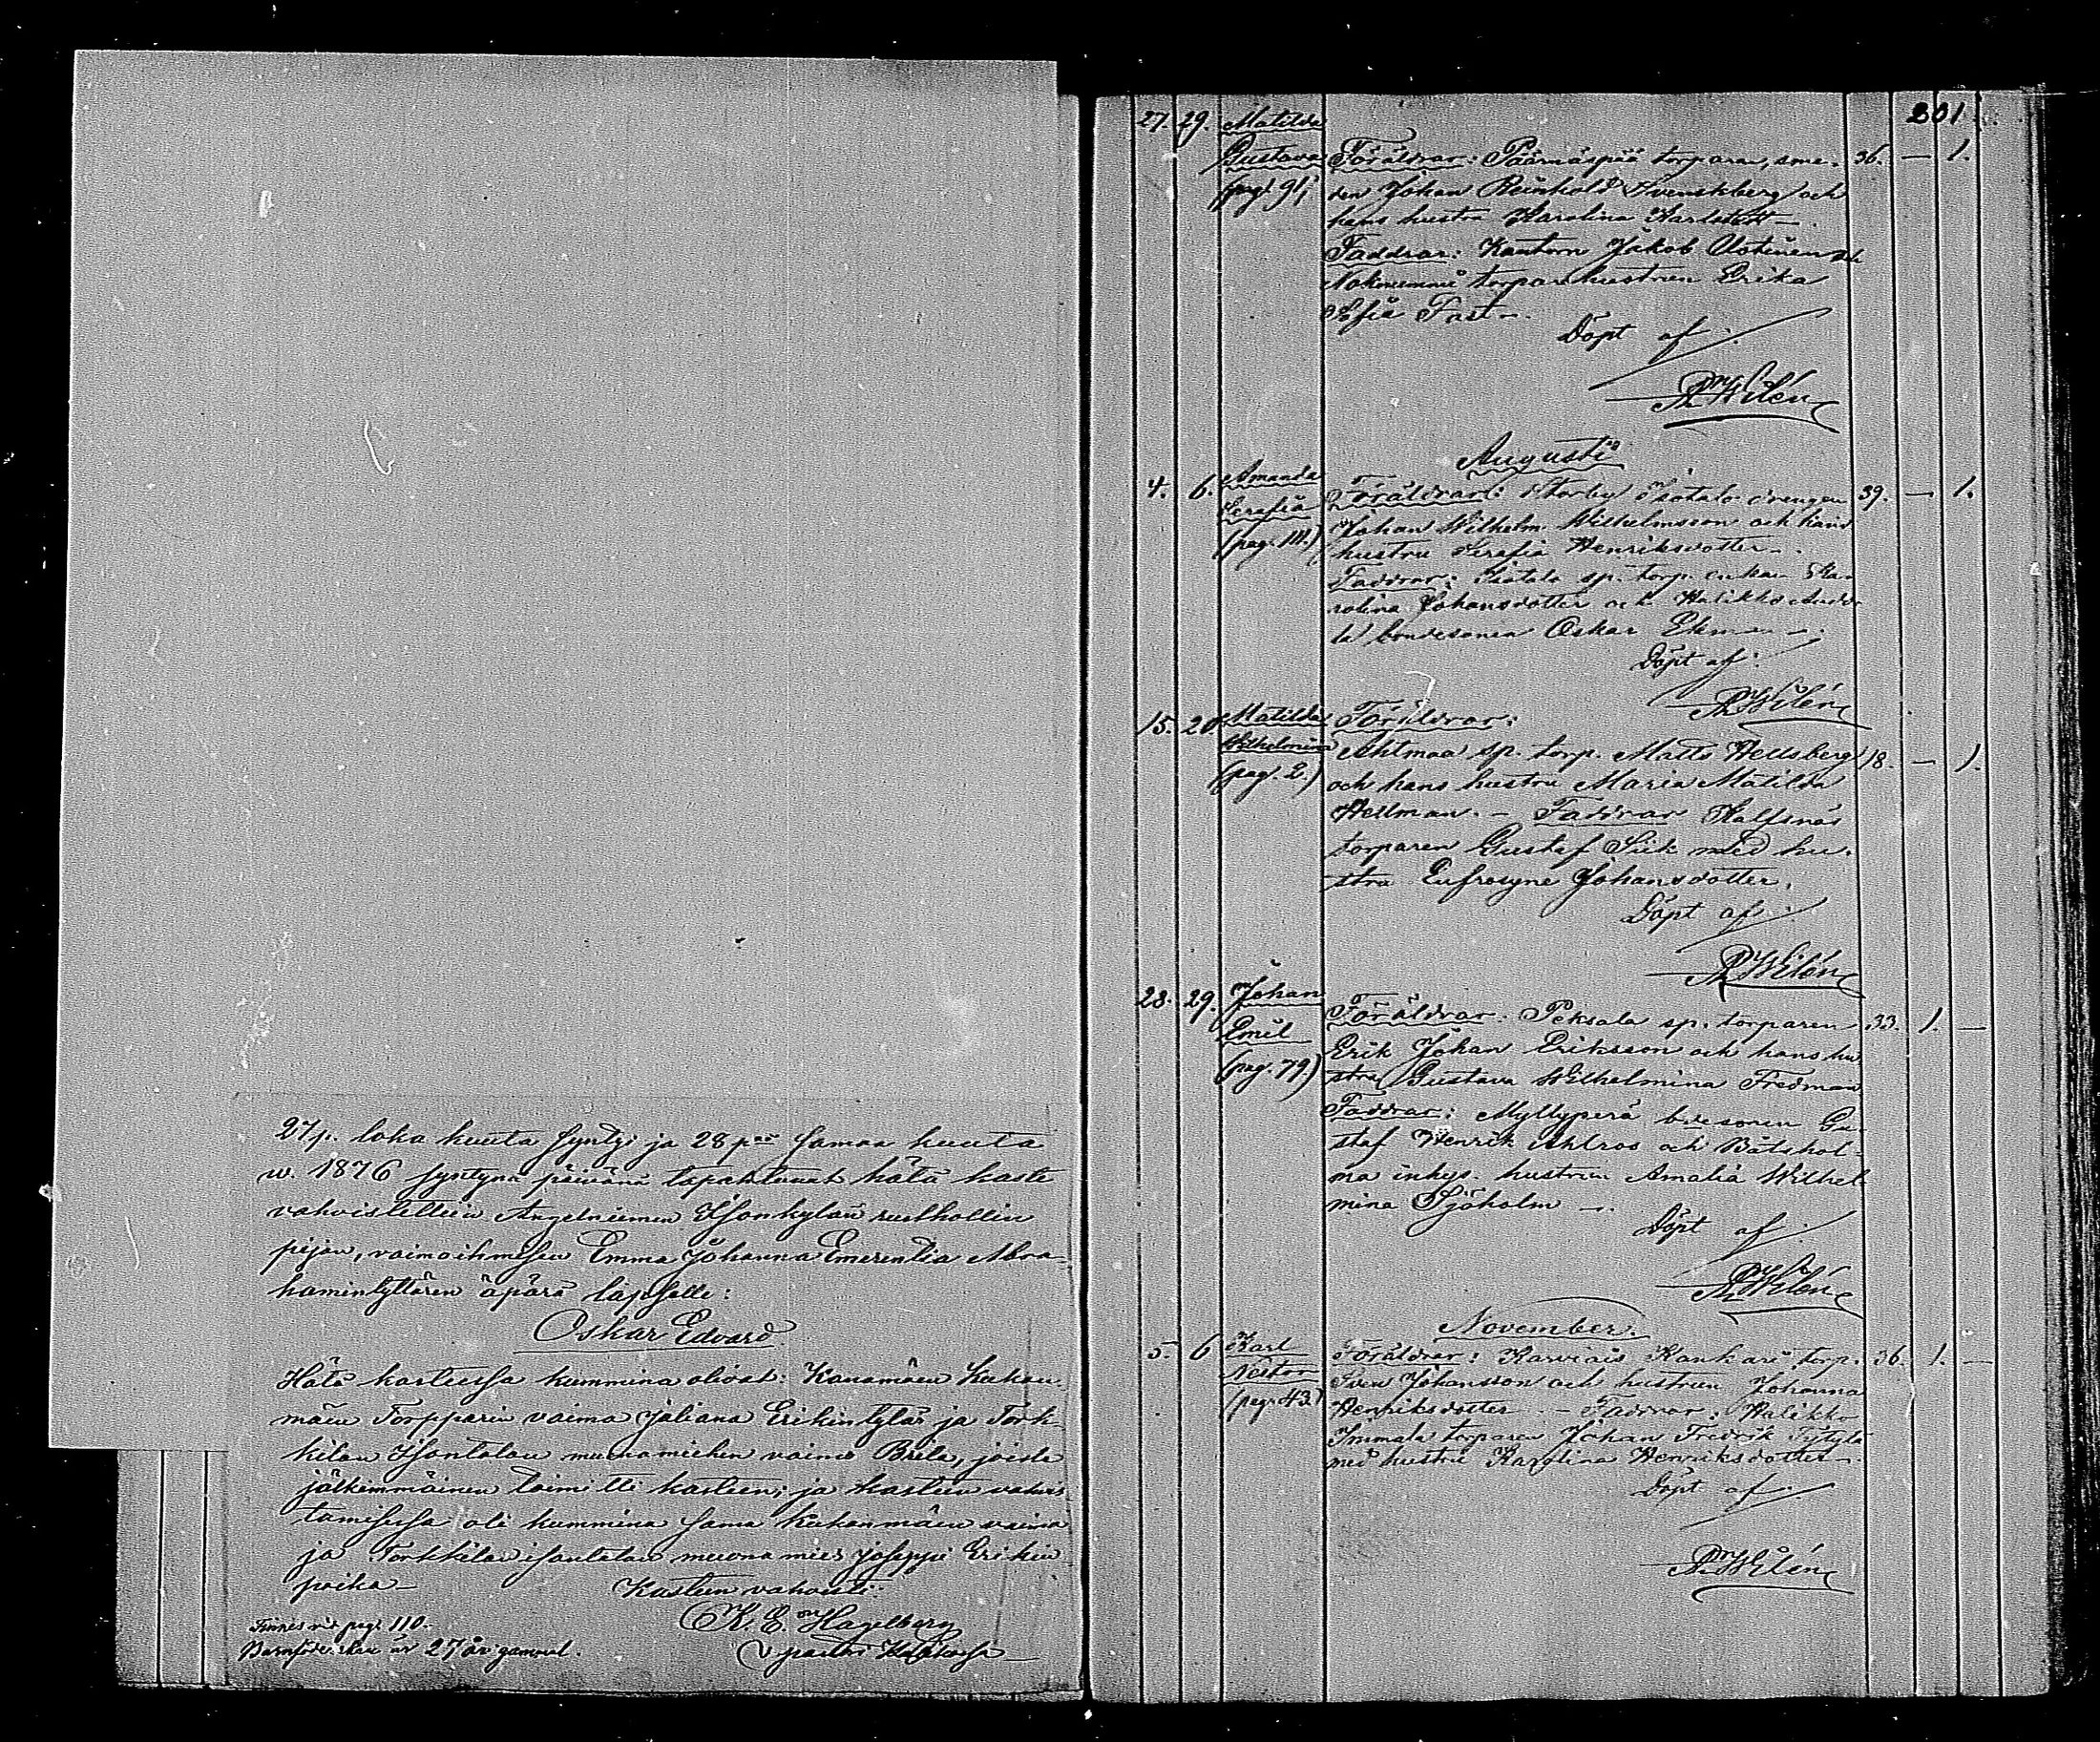 27 p. loka kuuta syntyi ja 28 pnä samaa kuuta
w. 1876 syntynä päivänä tapahtunut hätä kaste
vahvistettiin Angelniemen Isonkylän rusthollin
pijan, vaimoihmisen Emma Johanna Emerentia Abra-
hamintyttären äpärä lapselle:
Oskar Edvard.
Hätä kasteessa kummina olivat: Kanamäen Kukon-
mäen Torpparin vaimo Juliana Erikintytär ja Tork-
kilan Isontalon muonamiehen vaimo Brita, joista
jälkimmäinen toimitti kasteen; ja kasteen vahvis-
tamisessa oli kummina sama Kukonmäen vaimo
ja Torkkilan isontalon muonamies Joseppi Erikin
poika –
Kasteen vahvisti:
K. E. Hagelberg
pastori Halikossa
Finnes vid pag. 110.
Barnföderskan är 27 år gammal.
301
27. 29. Matilda
Gustava Föräldrar: Päärnäspää torparen, sme- 36. – 1.
(pag. 91) den Johan Reinhold Svenskberg och
hans hustru Karolina Karlsdott –
Faddrar: Kantorn Jakob Uotinen och
Nokmummi torparehustrun Erika
Sofia Fast –.
Döpt af:
Wilén
Augusti
4. 6. Amanda Föräldrar: Storby Isotalo drengen 39. – 1.
Serafia Johan Wilhelm Wilhelmsson och hans
(pag. 111.) hustru Serafia Henriksdotter –.
Faddrar: Isotalo sp. torp. enkan Ka-
rolina Johansdotter och Halikko
la bondesonen Oskar
Döpt af:
Wilén
15. 20. Matilda Föräldrar:
Wilhelmina Ahtmaa sp. torp. Matts Hellsberg 18. – 1.
(pag. 2.) och hans hustru Maria Matilda
Hellman. – Faddrar Kalfsnäs
torparen Gustaf Siik med hu-
stru Eufrosyne Johansdotter.
Döpt af:
Wilén
28. 29. Johan Föräldrar: Peksala sp. torparen 33. 1. –
Emil Erik Johan Eriksson och hans hu
(pag. 79) stru Gustava Wilhelmina Fredman
Faddrar: Myllyperä bdesonen Gu-
staf Henrik Ahlros och Båtshol-
ma inhys. hustrun Amalia Wilhel
mina Sjöholm –.
Döpt af:
Wilén
November.
5. 6 Karl Föräldrar: Karviais Kankare torp. 36. 1. –
Nestor Sven Johansson och hustrun Johanna
(pag. 43.) Henriksdotter – Faddrar: Halikko
Immala torparen Johan Fredrik
med hustru Karolina Henriksdotter –.
Döpt af:
Wilén